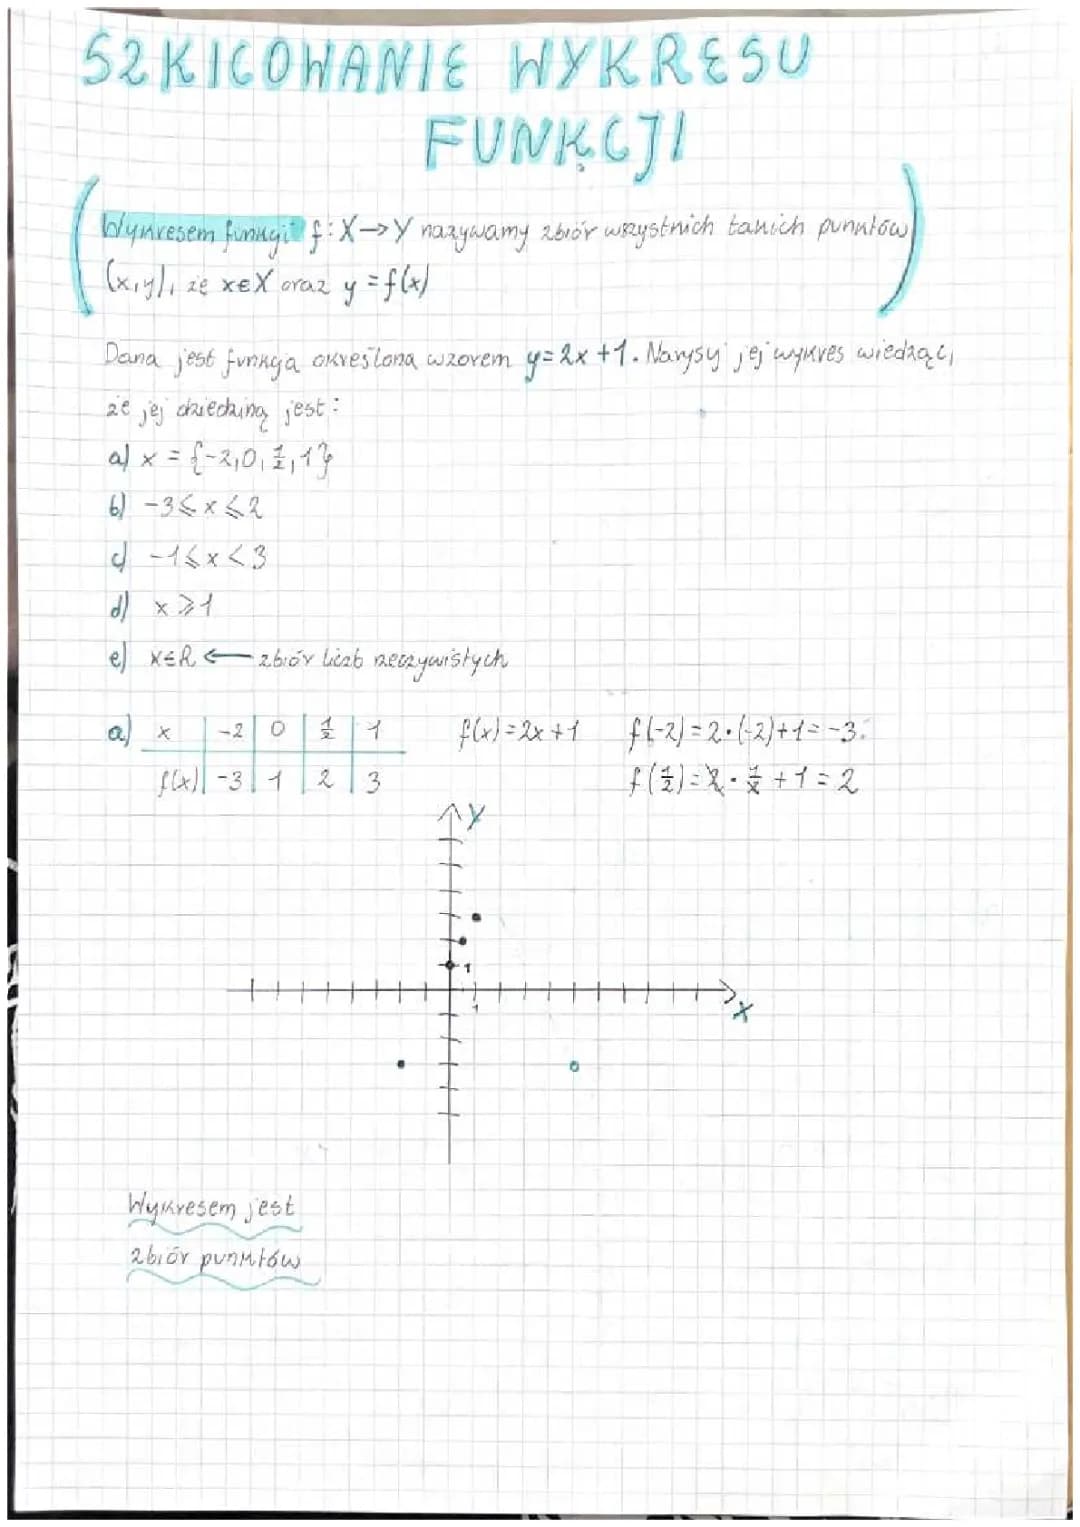 SZKICOWANIE WYKRESU
FUNKCJI
Wykresem funkcji f: X→Y nazywamy zbiór wszystkich takich punktów
(x,y), że x∈X oraz y = f(x)
Dana jest funkcja określona wzorem y=2x+1. Narysuj jej wykres wiedząc,
że jej dziedziną jest:
a) x = {-2,0,1/2,1}
b) -3⩽x⩽2
c) -1⩽x<3
d) x⩾1
e) x∈R ← zbiór liczb rzeczywistych
a) x | -2 | 0 | 1/2 | 1 f(x)=2x+1 f(-2)=2·(-2)+1=-3
f(x) | -3 | 1 | 2 | 3 f(1/2)=2·1/2+1=2
Y
1
1
X
Wykresem jest
zbiór punktów